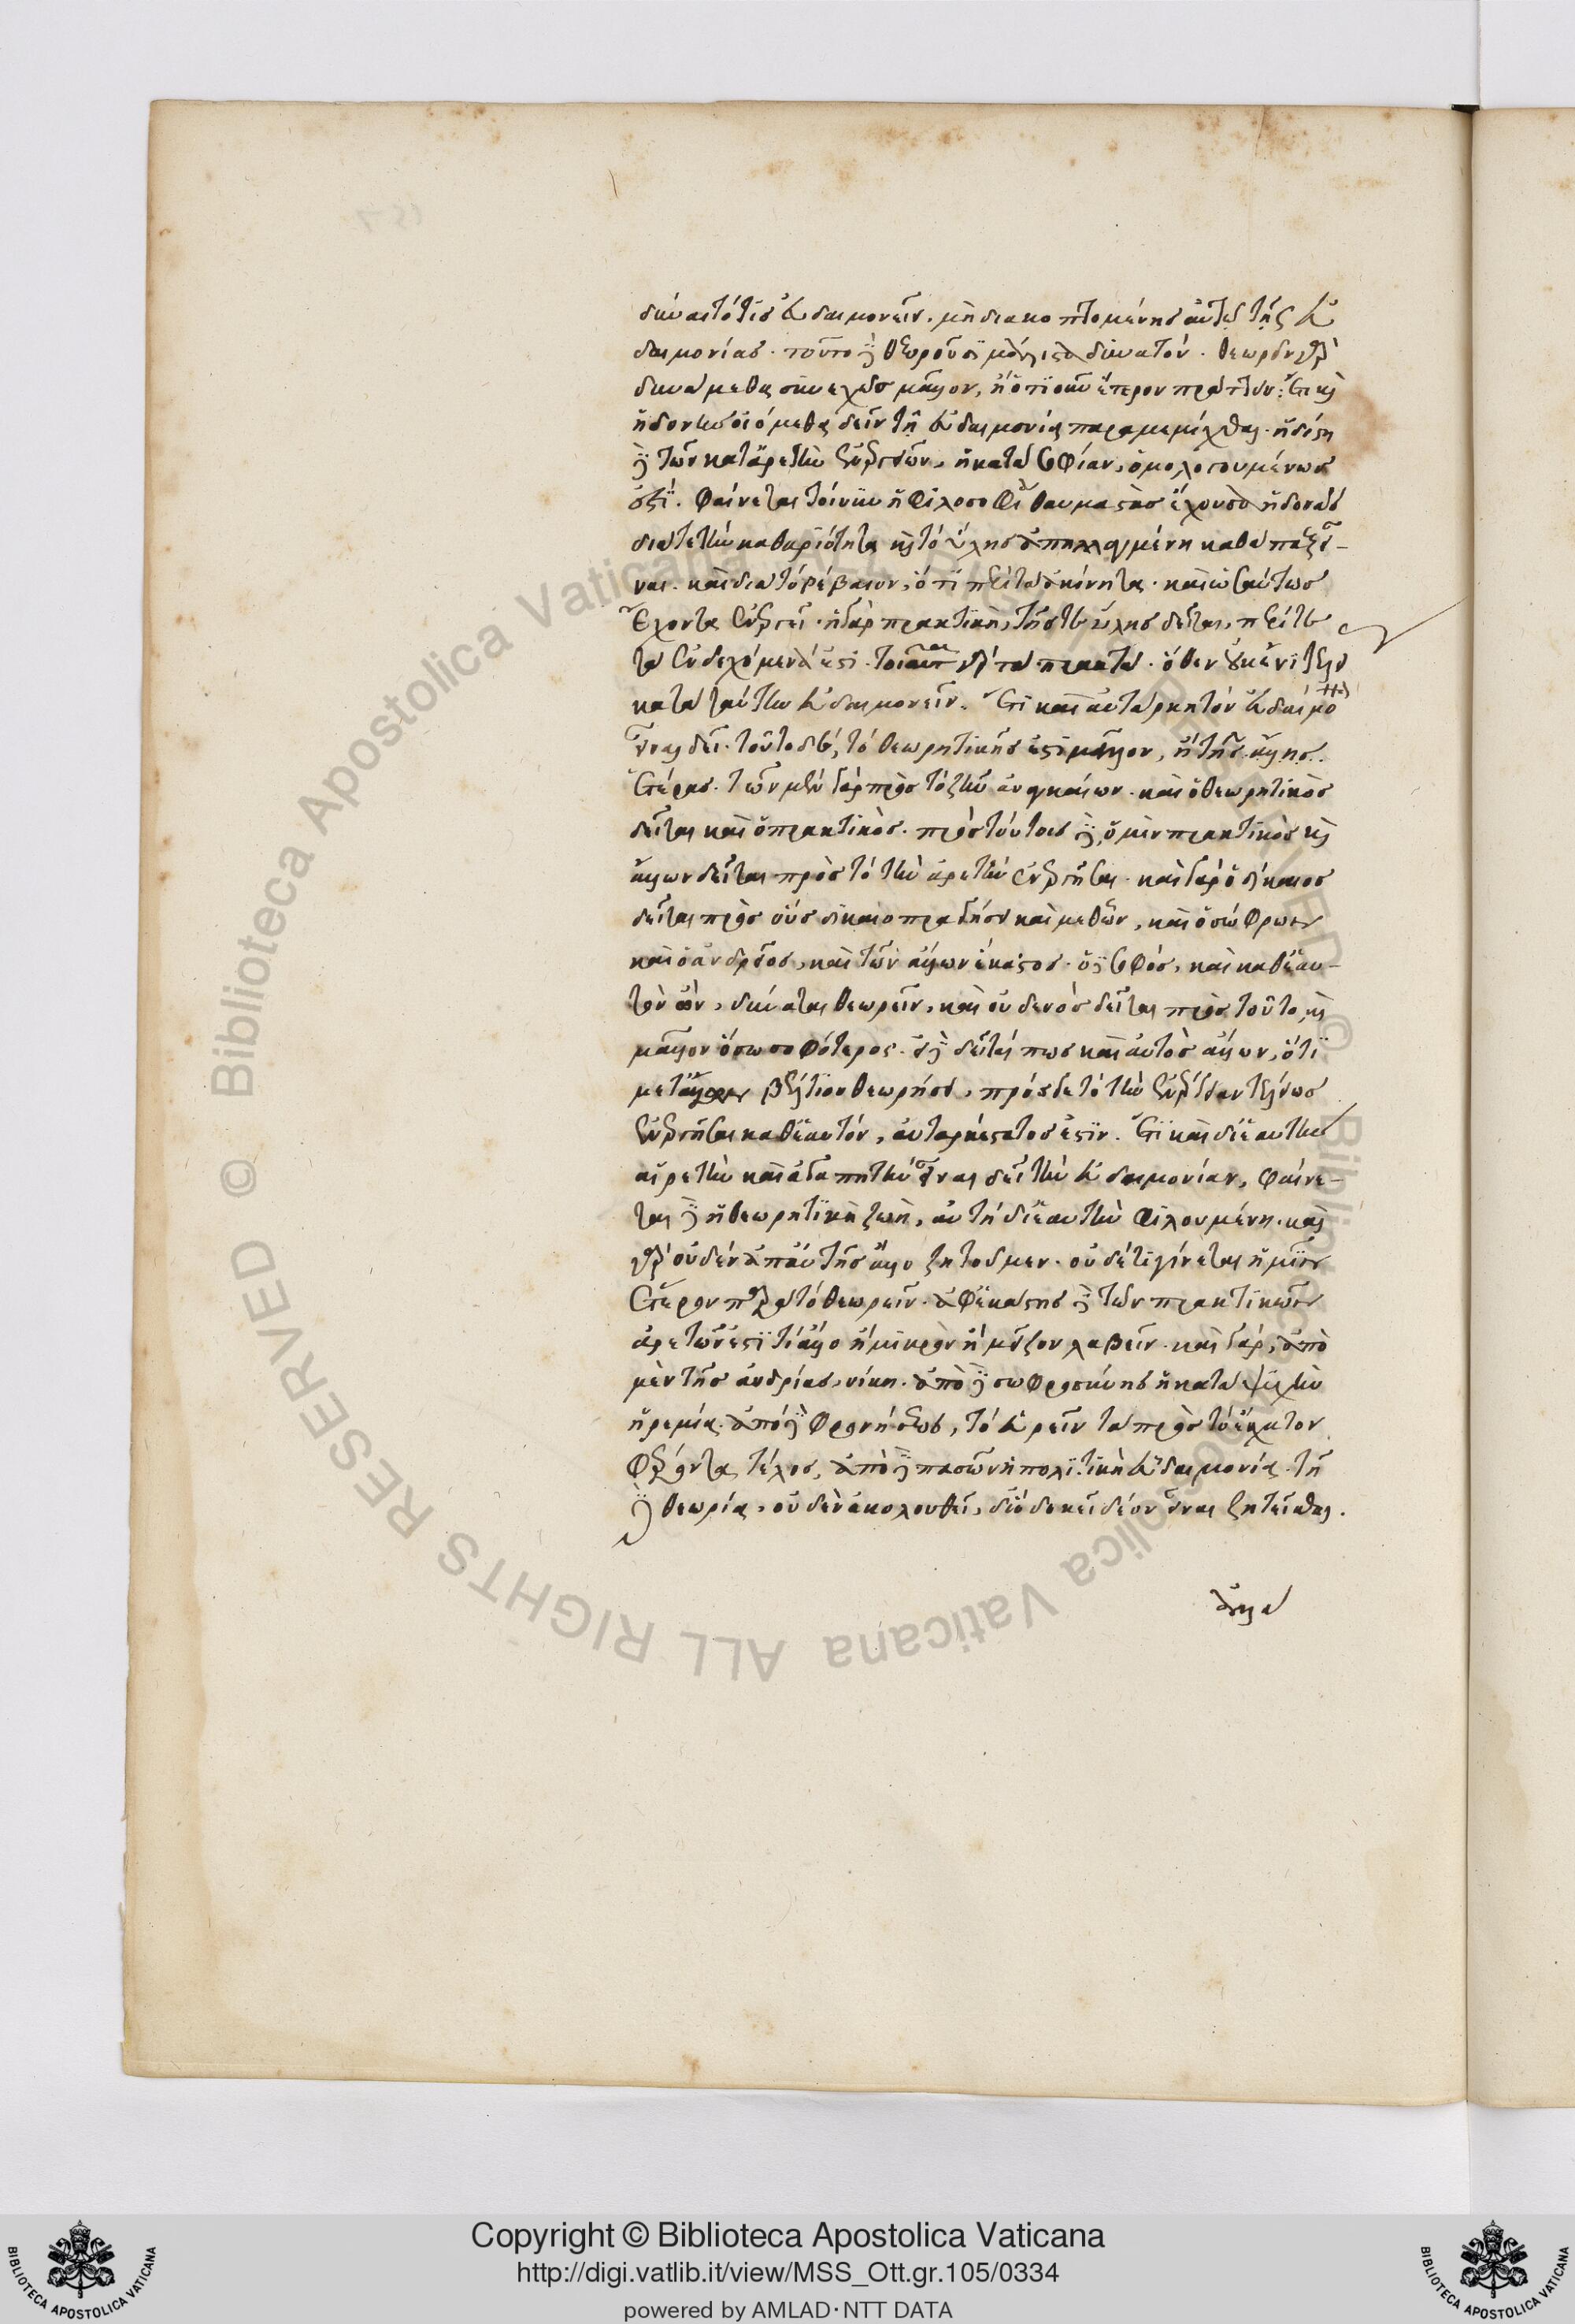 δύναιτό τις εὐδαιμονεῖν, μὴ διακοπτομένης αὐτῷ τῆς εὐ
δαιμονίας. τοῦτο δὲ θεωροῦσι μάλιστα δυνατόν. θεωρεῖν γὰρ
δυνάμεθα συνεχῶς μᾶλλον, ἢ ὁτιοῦν ἕτερον πράττειν. ἔτι καὶ
ἡδονὴν οἰόμεθα δεῖν τῇ εὐδαιμονίᾳ παραμεμίχθαι. ἡδίστη
δὲ τῶν κατ' ἀρετὴν ἐνεργειῶν, ἡ κατὰ σοφίαν, ὁμολογουμένως
ἐστί. φαίνεται τοίνυν ἡ φιλοσοφία θαυμαστὰς ἔχουσα ἡδονὰς
διά τε τὴν καθαριότητα καὶ τὸ ὕλης ἀπηλλαγμένη καθάπαξ εἶ-
ναι. καὶ διὰ τὸ βέβαιον, ὅτι περὶ τὰ ἀκίνητα. καὶ ὡσαύτως
ἔχοντα ἐνεργεῖ. ἡ γὰρ πρακτικὴ, τῆς τε ὕλης δεῖται, περί τε
τὰ ἐνδεχόμενά ἐστι. τοιαῦτα γὰρ τὰ πρακτά. ὅθεν οὐκ ἔνι τελείν
κατὰ ταύτην εὐδαιμονεῖν. ἔτι καὶ αὐτάρκη τὸν εὐδαίμονα
εἶναι δεῖ. τοῦτο δὲ, τὸ θεωρητικῆς ἐστι μᾶλλον, ἢ τῆς ἄλλης.
ἑτέρας. τῶν μὲν γὰρ πρὸς τὸ ζῆν ἀναγκαίων. καὶ ὁ θεωρητικὸς
δεῖται καὶ ὁ πρακτικὸς. πρὸς τούτοις δὲ, ὁ μὲν πρακτικὸς καὶ
ἄλλων δεῖται πρὸς τὸ τὴν ἀρετὴν ἐνεργῆσαι. καὶ γὰρ ὁ δίκαιος
δεῖται πρὸς οὓς δικαιοπραγήσει καὶ μεθ' ὧν, καὶ ὁ σώφρων
καὶ ὁ ἀνδρεῖος, καὶ τῶν ἄλλων ἕκαστος. ὁ δὲ σοφός, καὶ καθ' ἑαυ-
τὸν ὢν, δύναται θεωρεῖν, καὶ οὐδενὸς δεῖται πρὸς τοῦτο, καὶ
μᾶλλον ὅσῳ σοφώτερος. εἰ δὲ δεῖταί πως καὶ αὐτὸς ἄλλων, ὅτι
μετ' ἄλλων βέλτιον θεωρήσει, πρός γε τὸ τὴν ἐνέργειαν τελείως
ἐνεργῆσαι καθ' ἑαυτόν, αὐταρκέστατος ἐστιν. ἔτι καὶ δι' ἑαυτὴν
αἱρετὴν καὶ ἀγαπητὴν εἶναι δεῖ τὴν εὐδαιμονίαν, φαίνε-
ται δὲ ἡ θεωρητικὴ ζωὴ, αὐτὴ δι' ἑαυτὴν φιλουμένη. καὶ
γὰρ οὐδὲν ἀπ' αὐτῆς ἄλλο ζητοῦμεν. οὐδέ τι γίνεται ἡμῖν
ἕτερον παρὰ τὸ θεωρεῖν. ἀφ' ἑκάστης δὲ τῶν πρακτικῶν
ἀρετῶν ἐστί τι ἄλλο ἢ μικρὸν ἢ μεῖζον λαβεῖν. καὶ γὰρ, ἀπὸ
μὲν τῆς ἀνδρίας, νίκη. ἀπὸ δὲ σωφροσύνης ἡ κατὰ ψυχὴν
ἠρεμία. ἀπὸ δὲ φρονήσεως, τὸ εὑρεῖν τὰ πρὸς τὸ ἔσχατον
φέροντα τέλος, ἀπὸ δὲ πασῶν ἡ πολιτικὴ εὐδαιμονία. τῇ
δὲ θεωρίᾳ, οὐδὲν ἀκολουθεῖ, δι' ὃ δοκεῖ δέον εἶναι ζητεῖσθαι.
ἀλλὰ
Copyright © Biblioteca Apostolica Vaticana
http://digi.vatlib.it/view/MSS_Ott.gr.105/0334
powered by AMLAD·NTT DATA
BIBLIOTECA APOSTOLICA VATICANA
BIBLIOTECA APOSTOLICA VATICANA
© Biblioteca Apostolica Vaticana ALL RIGHTS RESERVED
© Biblioteca Apostolica Vaticana ALL RIGHTS RESERVED